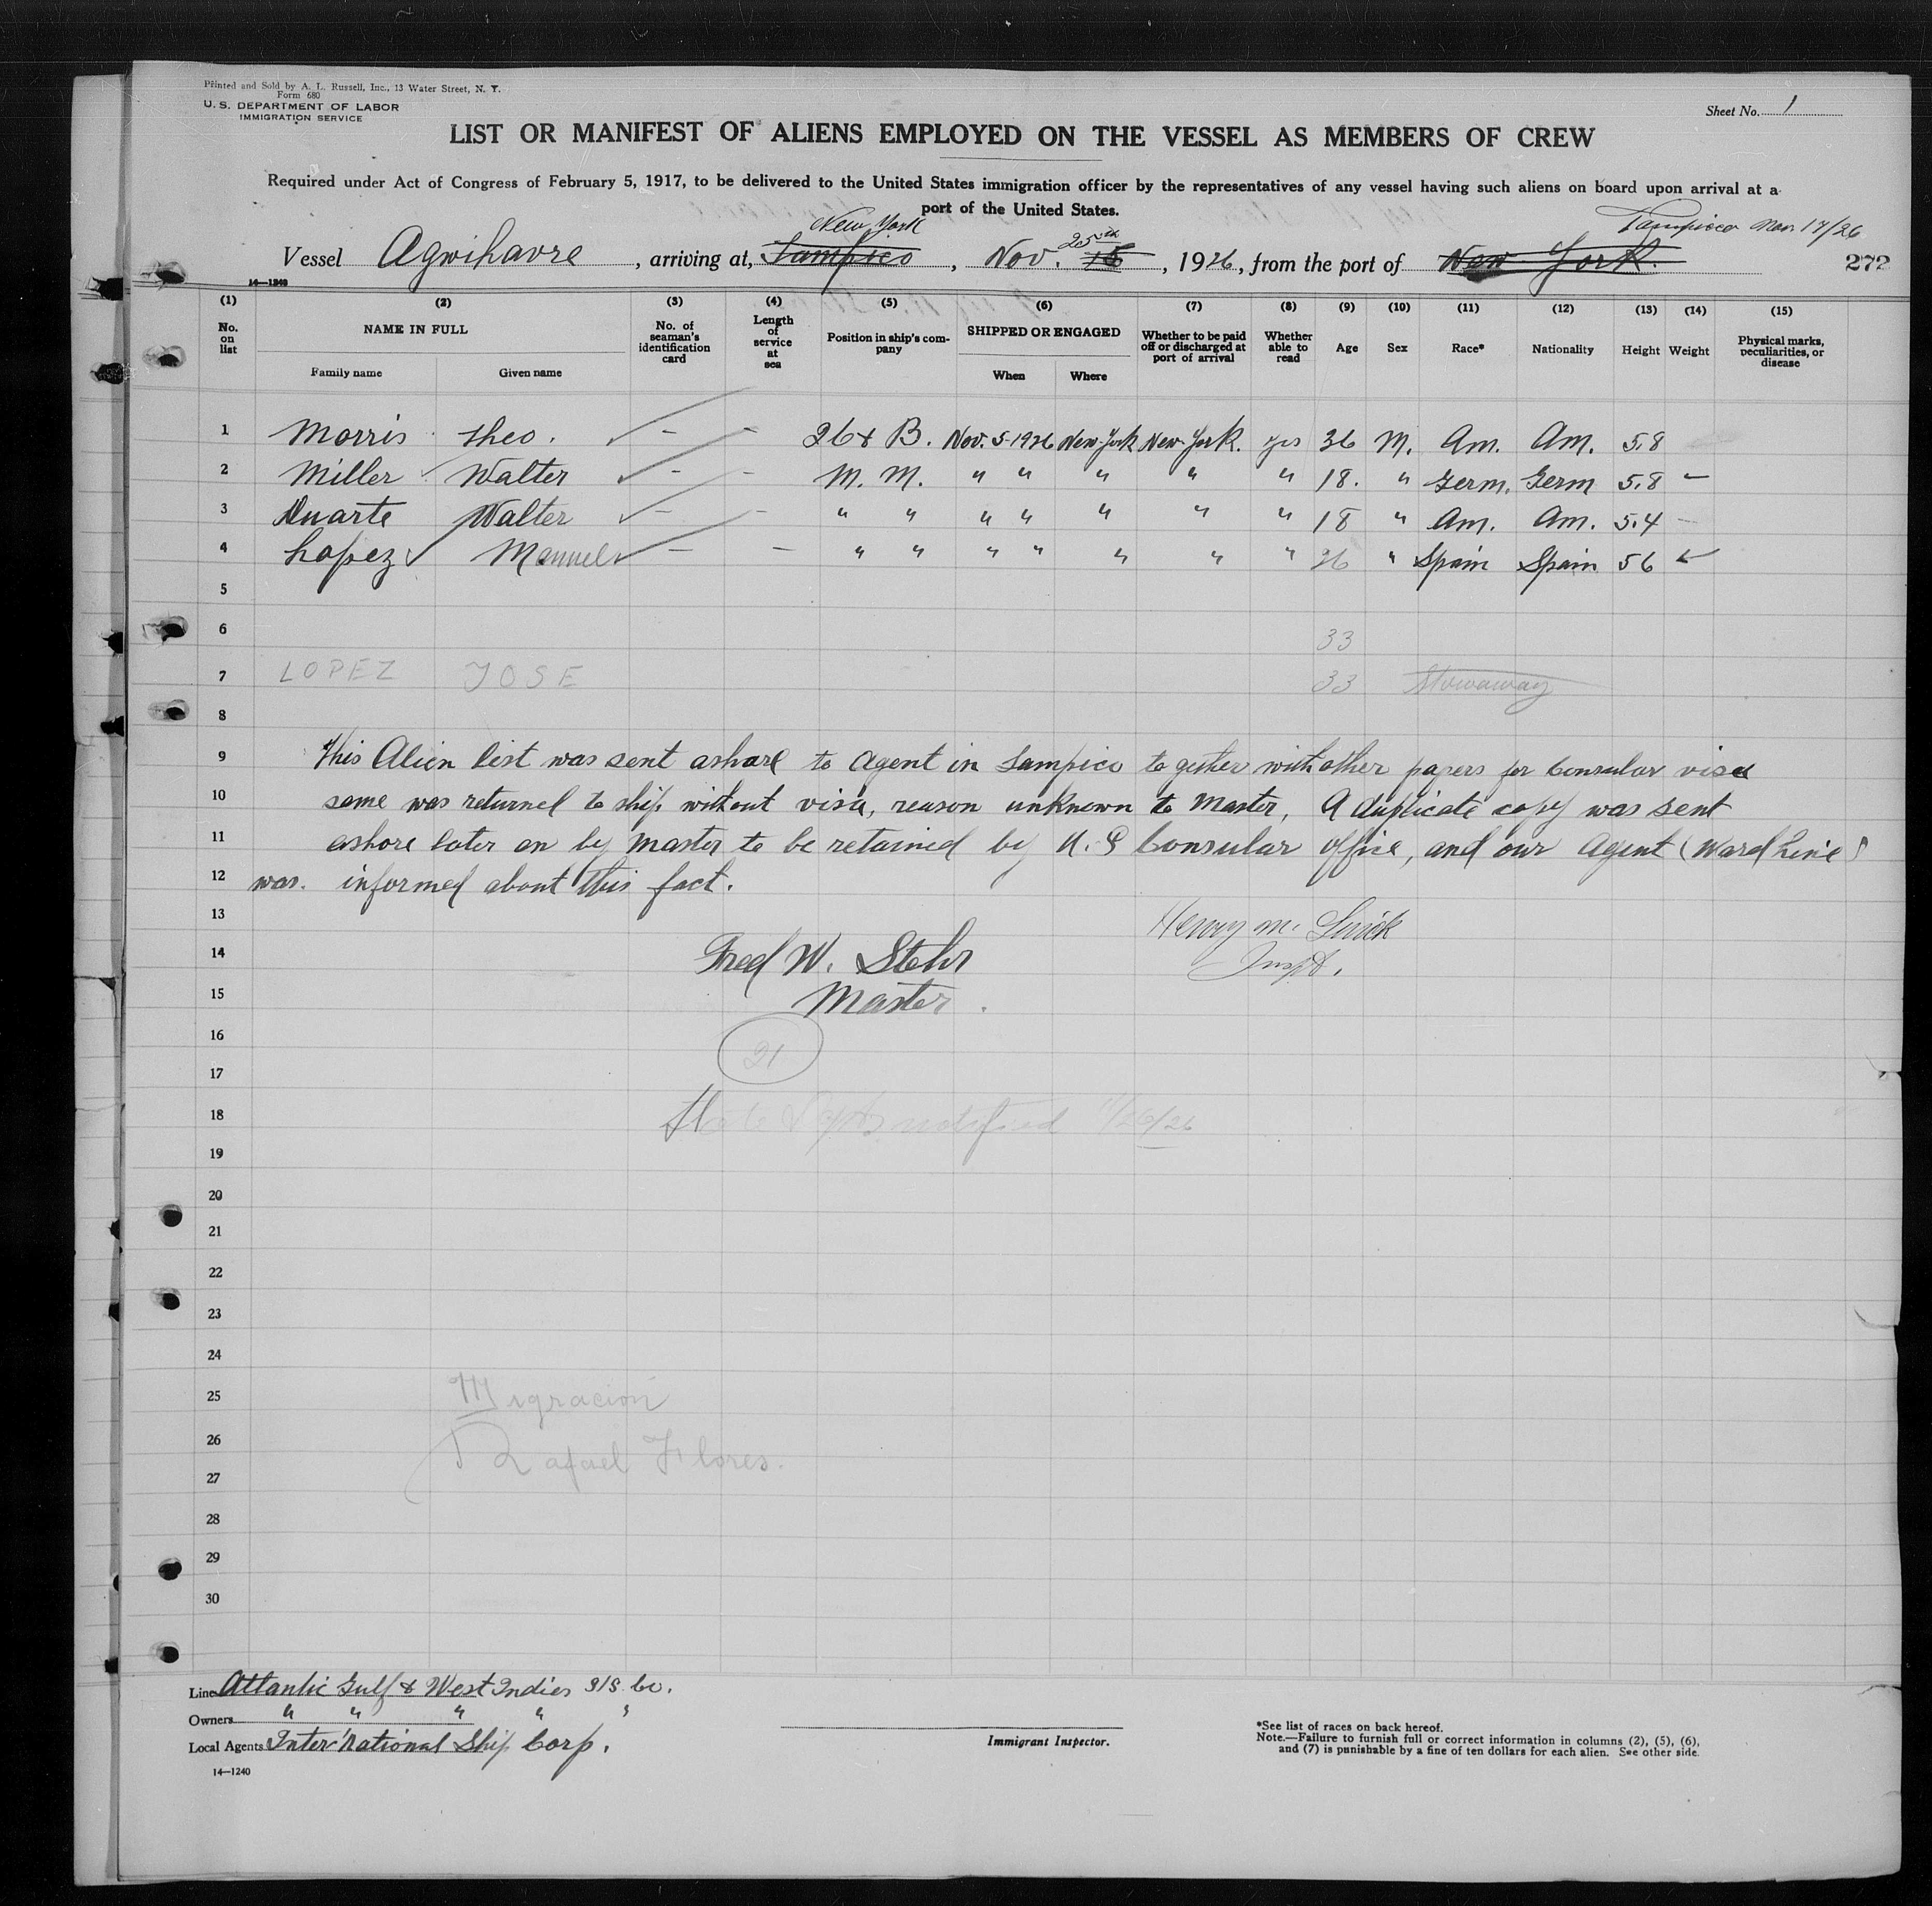 Printed and Sold by A. L. Russell, Inc., 13 Water Street, N. Y.
Form 680
U. S. DEPARTMENT OF LABOR
IMMIGRATION SERVICE
Sheet No. 1
LIST OR MANIFEST OF ALIENS EMPLOYED ON THE VESSEL AS MEMBERS OF CREW
Required under Act of Congress of February 5, 1917, to be delivered to the United States immigration officer by the representatives of any vessel having such aliens on board upon arrival at a
port of the United States.
New York 25th Tampico Nov 17/26
Vessel Agwihavre, arriving at, Tampico, Nov. 16, 1926, from the port of New York. 272
14—1240
(1) (2) (3) (4) (5) (6) (7) (8) (9) (10) (11) (12) (13) (14) (15)
No. on list NAME IN FULL No. of seaman's identification card Length of service at sea Position in ship's company SHIPPED OR ENGAGED Whether to be paid off or discharged at port of arrival Whether able to read Age Sex Race* Nationality Height Weight Physical marks, peculiarities, or disease
Family name Given name When Where
1 Morris Theo. - - B. Nov. 5-1926 New-York New-York. yes 36 M. Am. Am. 5.8
2 Miller Walter - - M. M. " " " " " 18. " Germ. Germ 5.8 -
3 Duarte Walter - - " " " " " " " 18 " Am. Am. 5.4 -
4 Lopez Manuel - - " " " " " " " 26 " Spain Spain 56
5
6 33
7 LOPEZ JOSE 33 Stowaway
8
9 This Alien list was sent ashore to Agent in Tampico to gether with other papers for Consular visa
10 same was returned to ship without visa, reason unknown to Master, A duplicate copy was sent
11 ashore later on by Master to be retained by U. S Consular office, and our Agent (Ward Line)
12 was. informed about this fact.
13 Henry M.
14 Fred W. Stehr Inspt.
15 Master.
16
21
17
18 State Dept notified 11/26/26
19
20
21
22
23
24
25 Migracion
26 Rafael Flores.
27
28
29
30
Line Atlantic Gulf & West Indies S/S. Co.
Owners " " " " "
Local Agents Inter National Ship. Corp.
Immigrant Inspector.
*See list of races on back hereof.
Note.—Failure to furnish full or correct information in columns (2), (5), (6),
and (7) is punishable by a fine of ten dollars for each alien. See other side.
14—1240